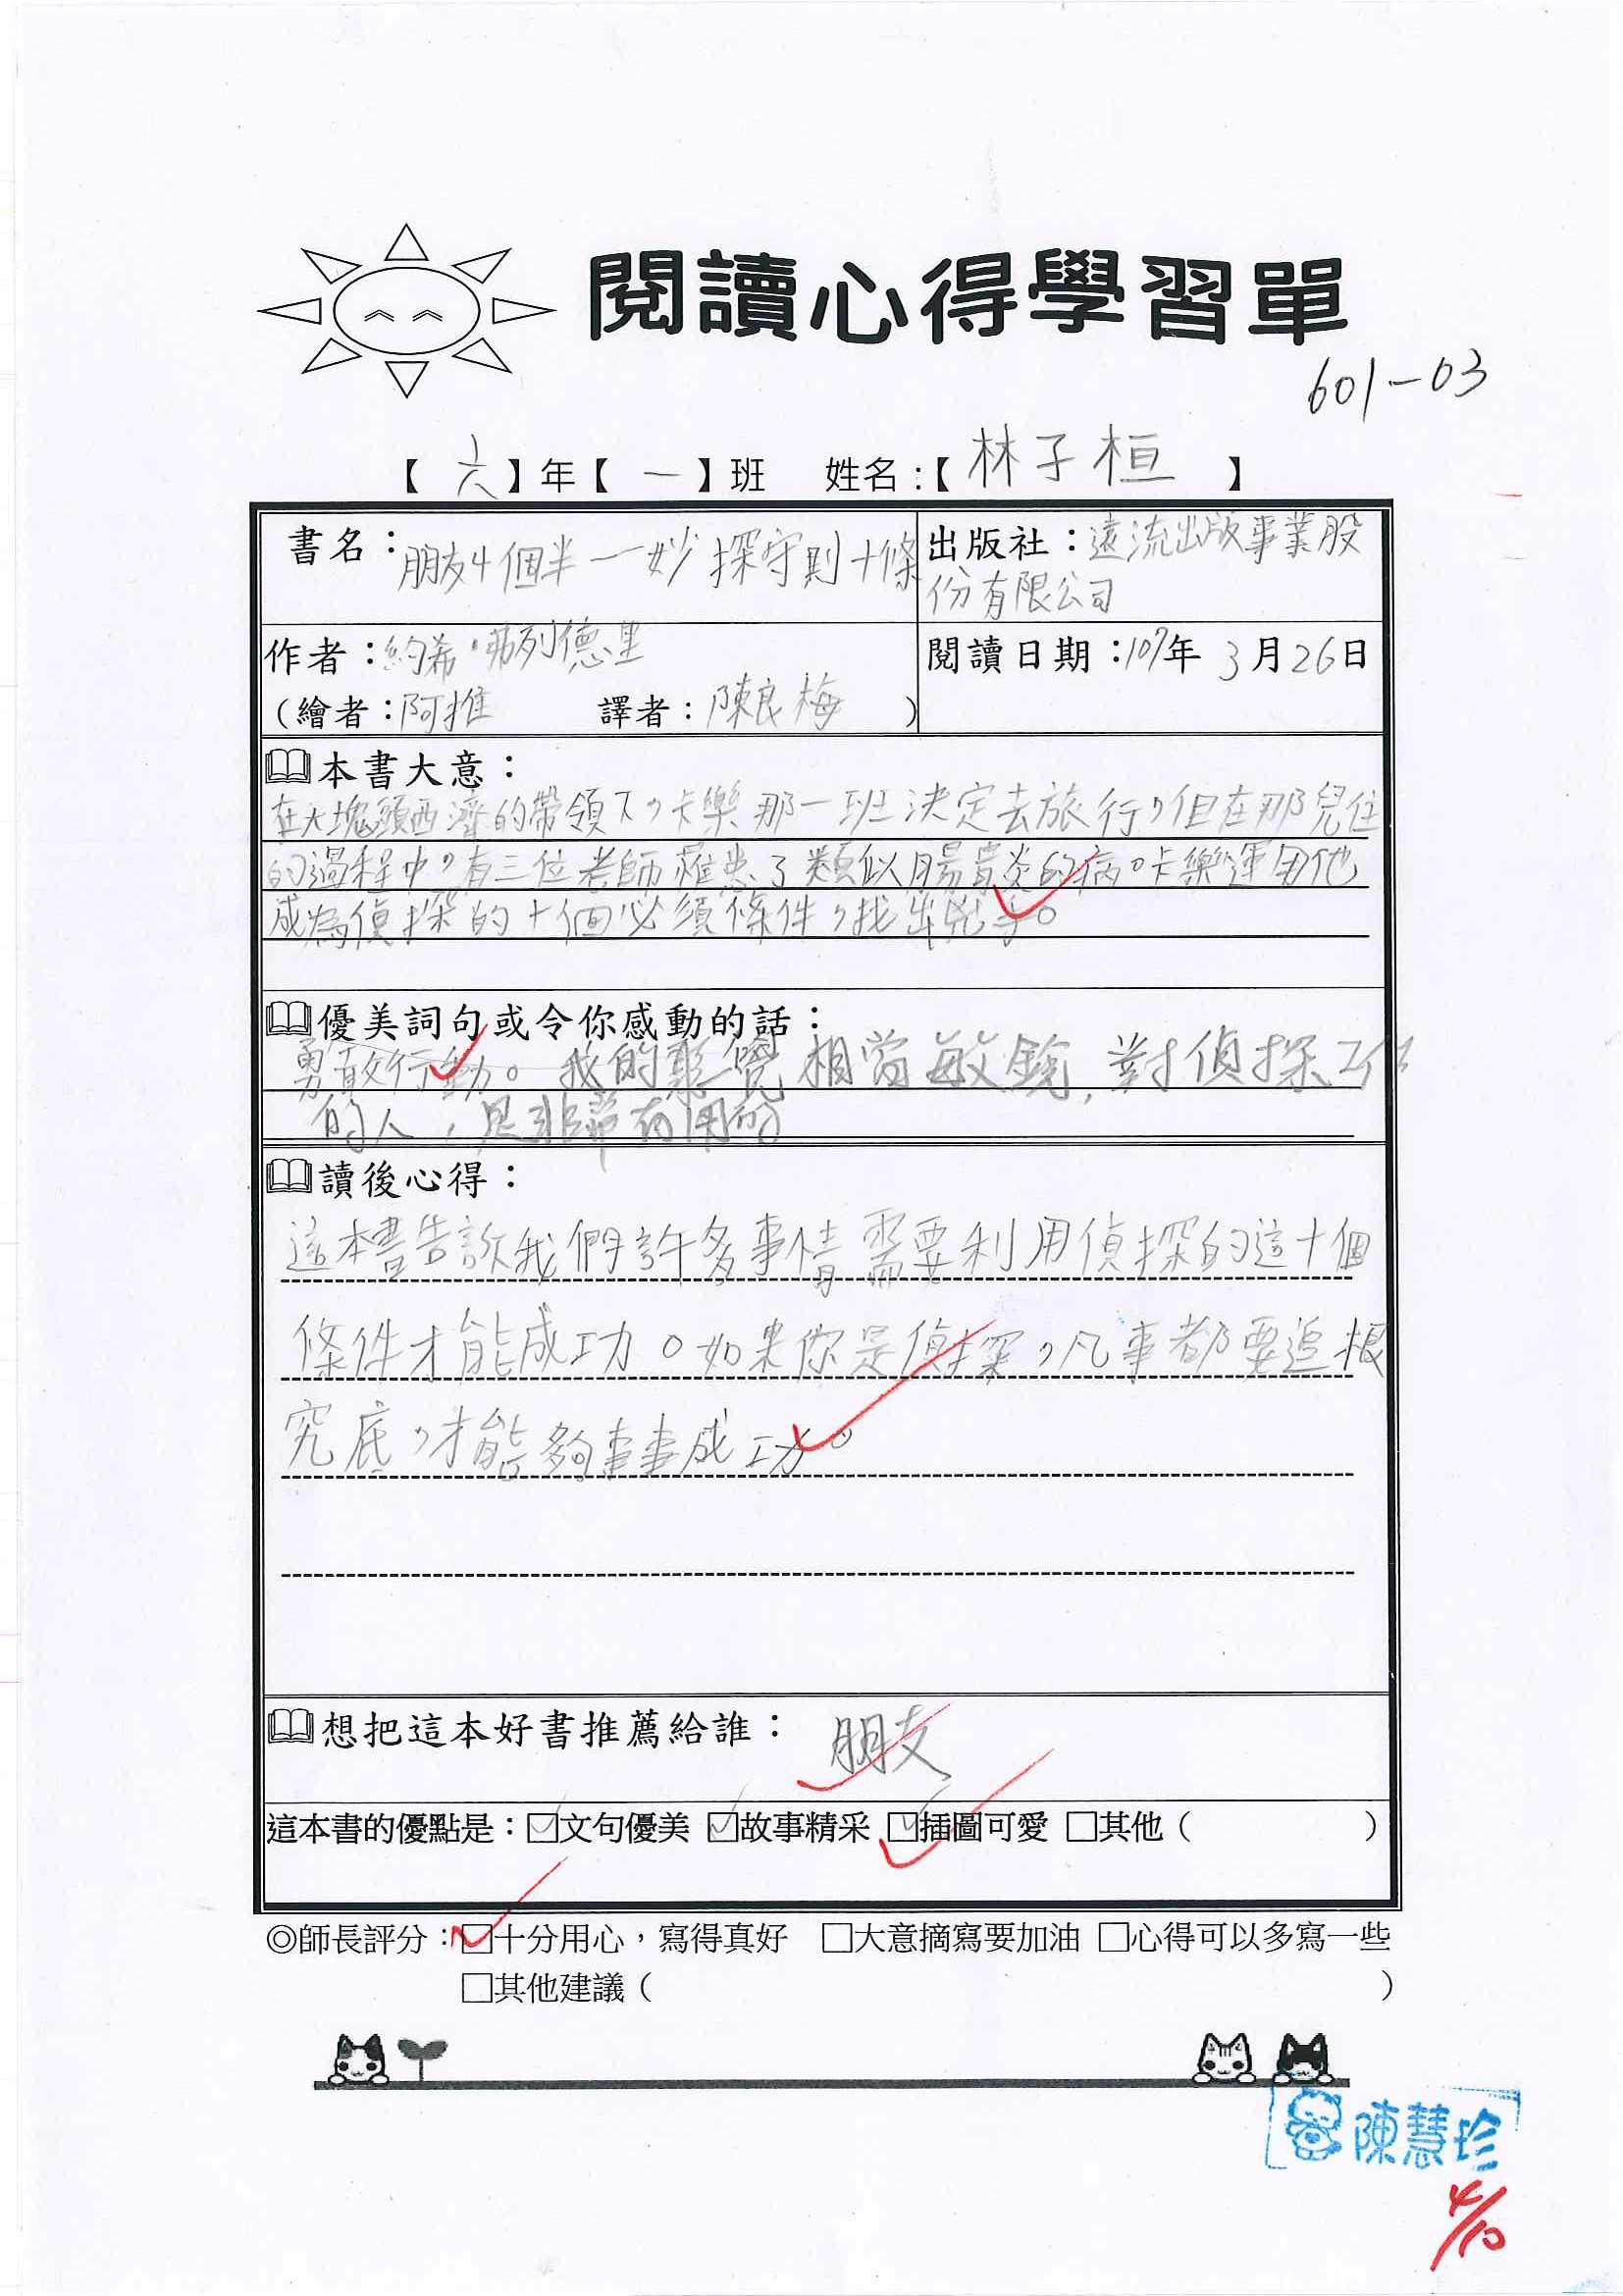 閱讀心得學習單
601-03
【六】年【一】班 姓名:【林子桓】
書名：朋友4個半一妙探守則十條
出版社：遠流出版事業股
份有限公司
作者：約希·弗列德里
(繪者：阿推 譯者：陳良梅)
閱讀日期：107年3月26日
本書大意：
在大塊頭西濟的帶領下，卡樂那一班決定去旅行，但在那兒住
的過程中，有三位老師罹患了類似腸胃炎的病。卡樂運用他
成為偵探的十個必須條件，找出兇手。
優美詞句或令你感動的話：
勇敢行動。我的聽覺相當敏銳，對偵探工作
的人，是非常有用的
讀後心得：
這本書告訴我們許多事情需要利用偵探的這十個
條件才能成功。如果你是偵探，凡事都要追根
究底，才能夠事事成功。
想把這本好書推薦給誰：朋友
這本書的優點是：☑文句優美 ☑故事精采 ☑插圖可愛 □其他( )
◎師長評分：☑十分用心，寫得真好 □大意摘寫要加油 □心得可以多寫一些
□其他建議( )
陳慧珍
4/10